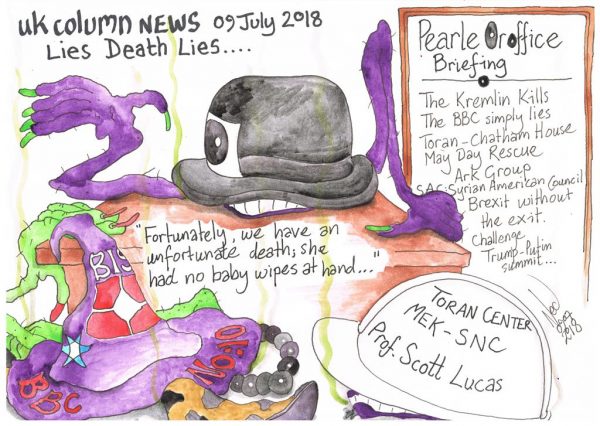 uk column NEWS 09 July 2018
Lies Death Lies....
Pearle Oroffice
Briefing
The Kremlin Kills
The BBC simply lies
Toran-Chatham House
May Day Rescue
Ark Group
SAC: Syrian American Council
Brexit without
the exit.
Challenge
Trump-Putin
summit...
"Fortunately, we have an
unfortunate death; she
had no baby wipes at hand..."
BIS
BBC
OFCOM
TORAN CENTER
MEK-SNC
Prof. Scott Lucas
2018